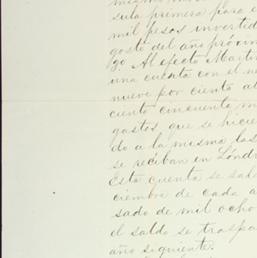 sula primera para e
mil pesos invertid
gosto del año próvin
go. Al efecto Marti
una cuenta con el ne
nueve por ciento al
ciento cincuenta m
gastos que se hicie
do a la misma las
se reciban en Lóndr
Esta cuenta se sal
ciembre de cada a
sado de mil ocho
el saldo se traspa
año siguiente.